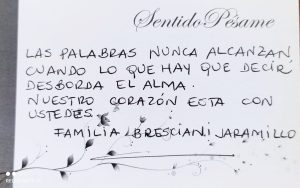 Sentido Pésame
LAS PALABRAS NUNCA ALCANZAN
CUANDO LO QUE HAY QUE DECIR
DESBORDA EL ALMA.
NUESTRO CORAZÓN ESTA CON
USTEDES.
FAMILIA BRESCIANI JARAMILLO